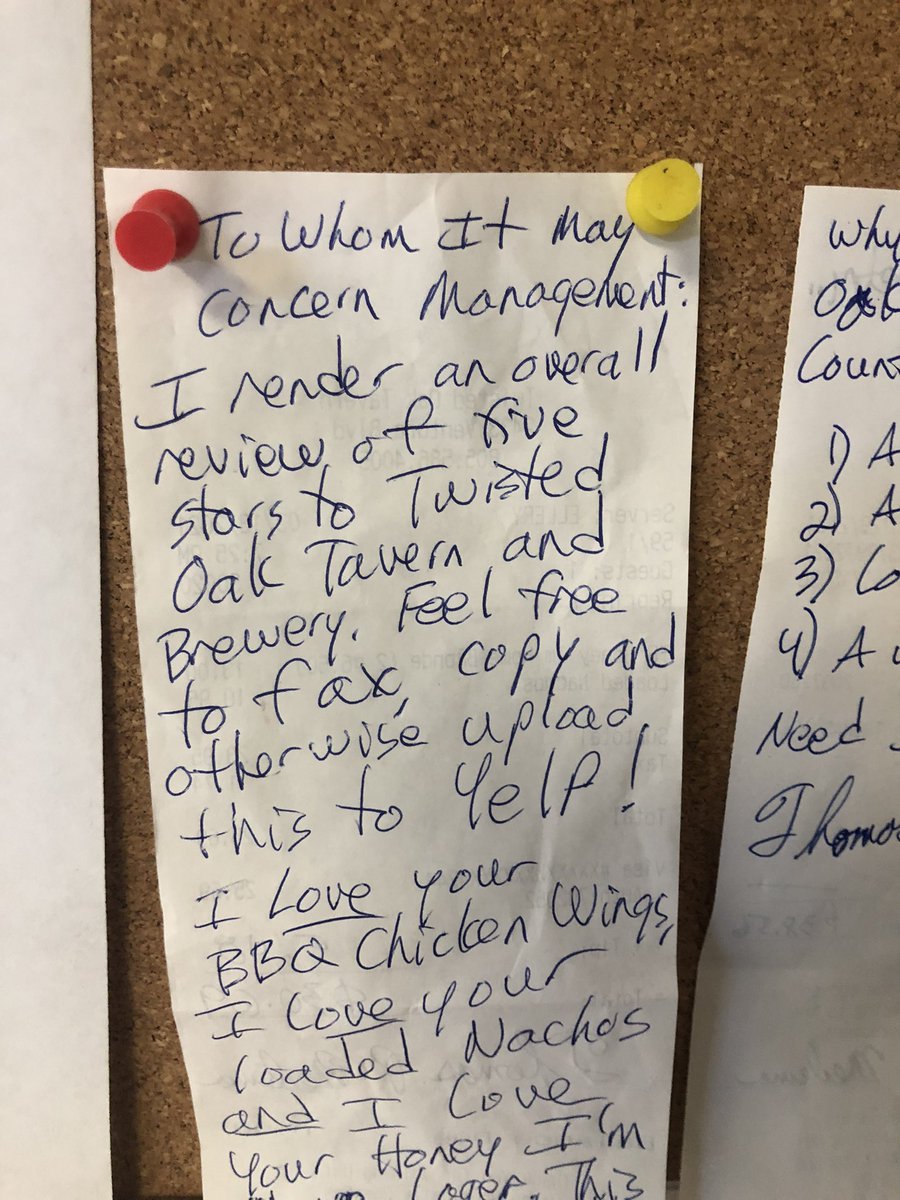 To Whom It May
Concern Management:
I render an overall
review of five
stars to Twisted
Oak Tavern and
Brewery. Feel free
to fax, copy and
otherwise upload
this to Yelp!
I Love your
BBQ Chicken Wings,
I Love your
loaded Nachos
and I Love
your Honey I'm
Lager. This
Why
Oak
Coun
1) A
2) A
3) Co
4) A
Need
Thomas